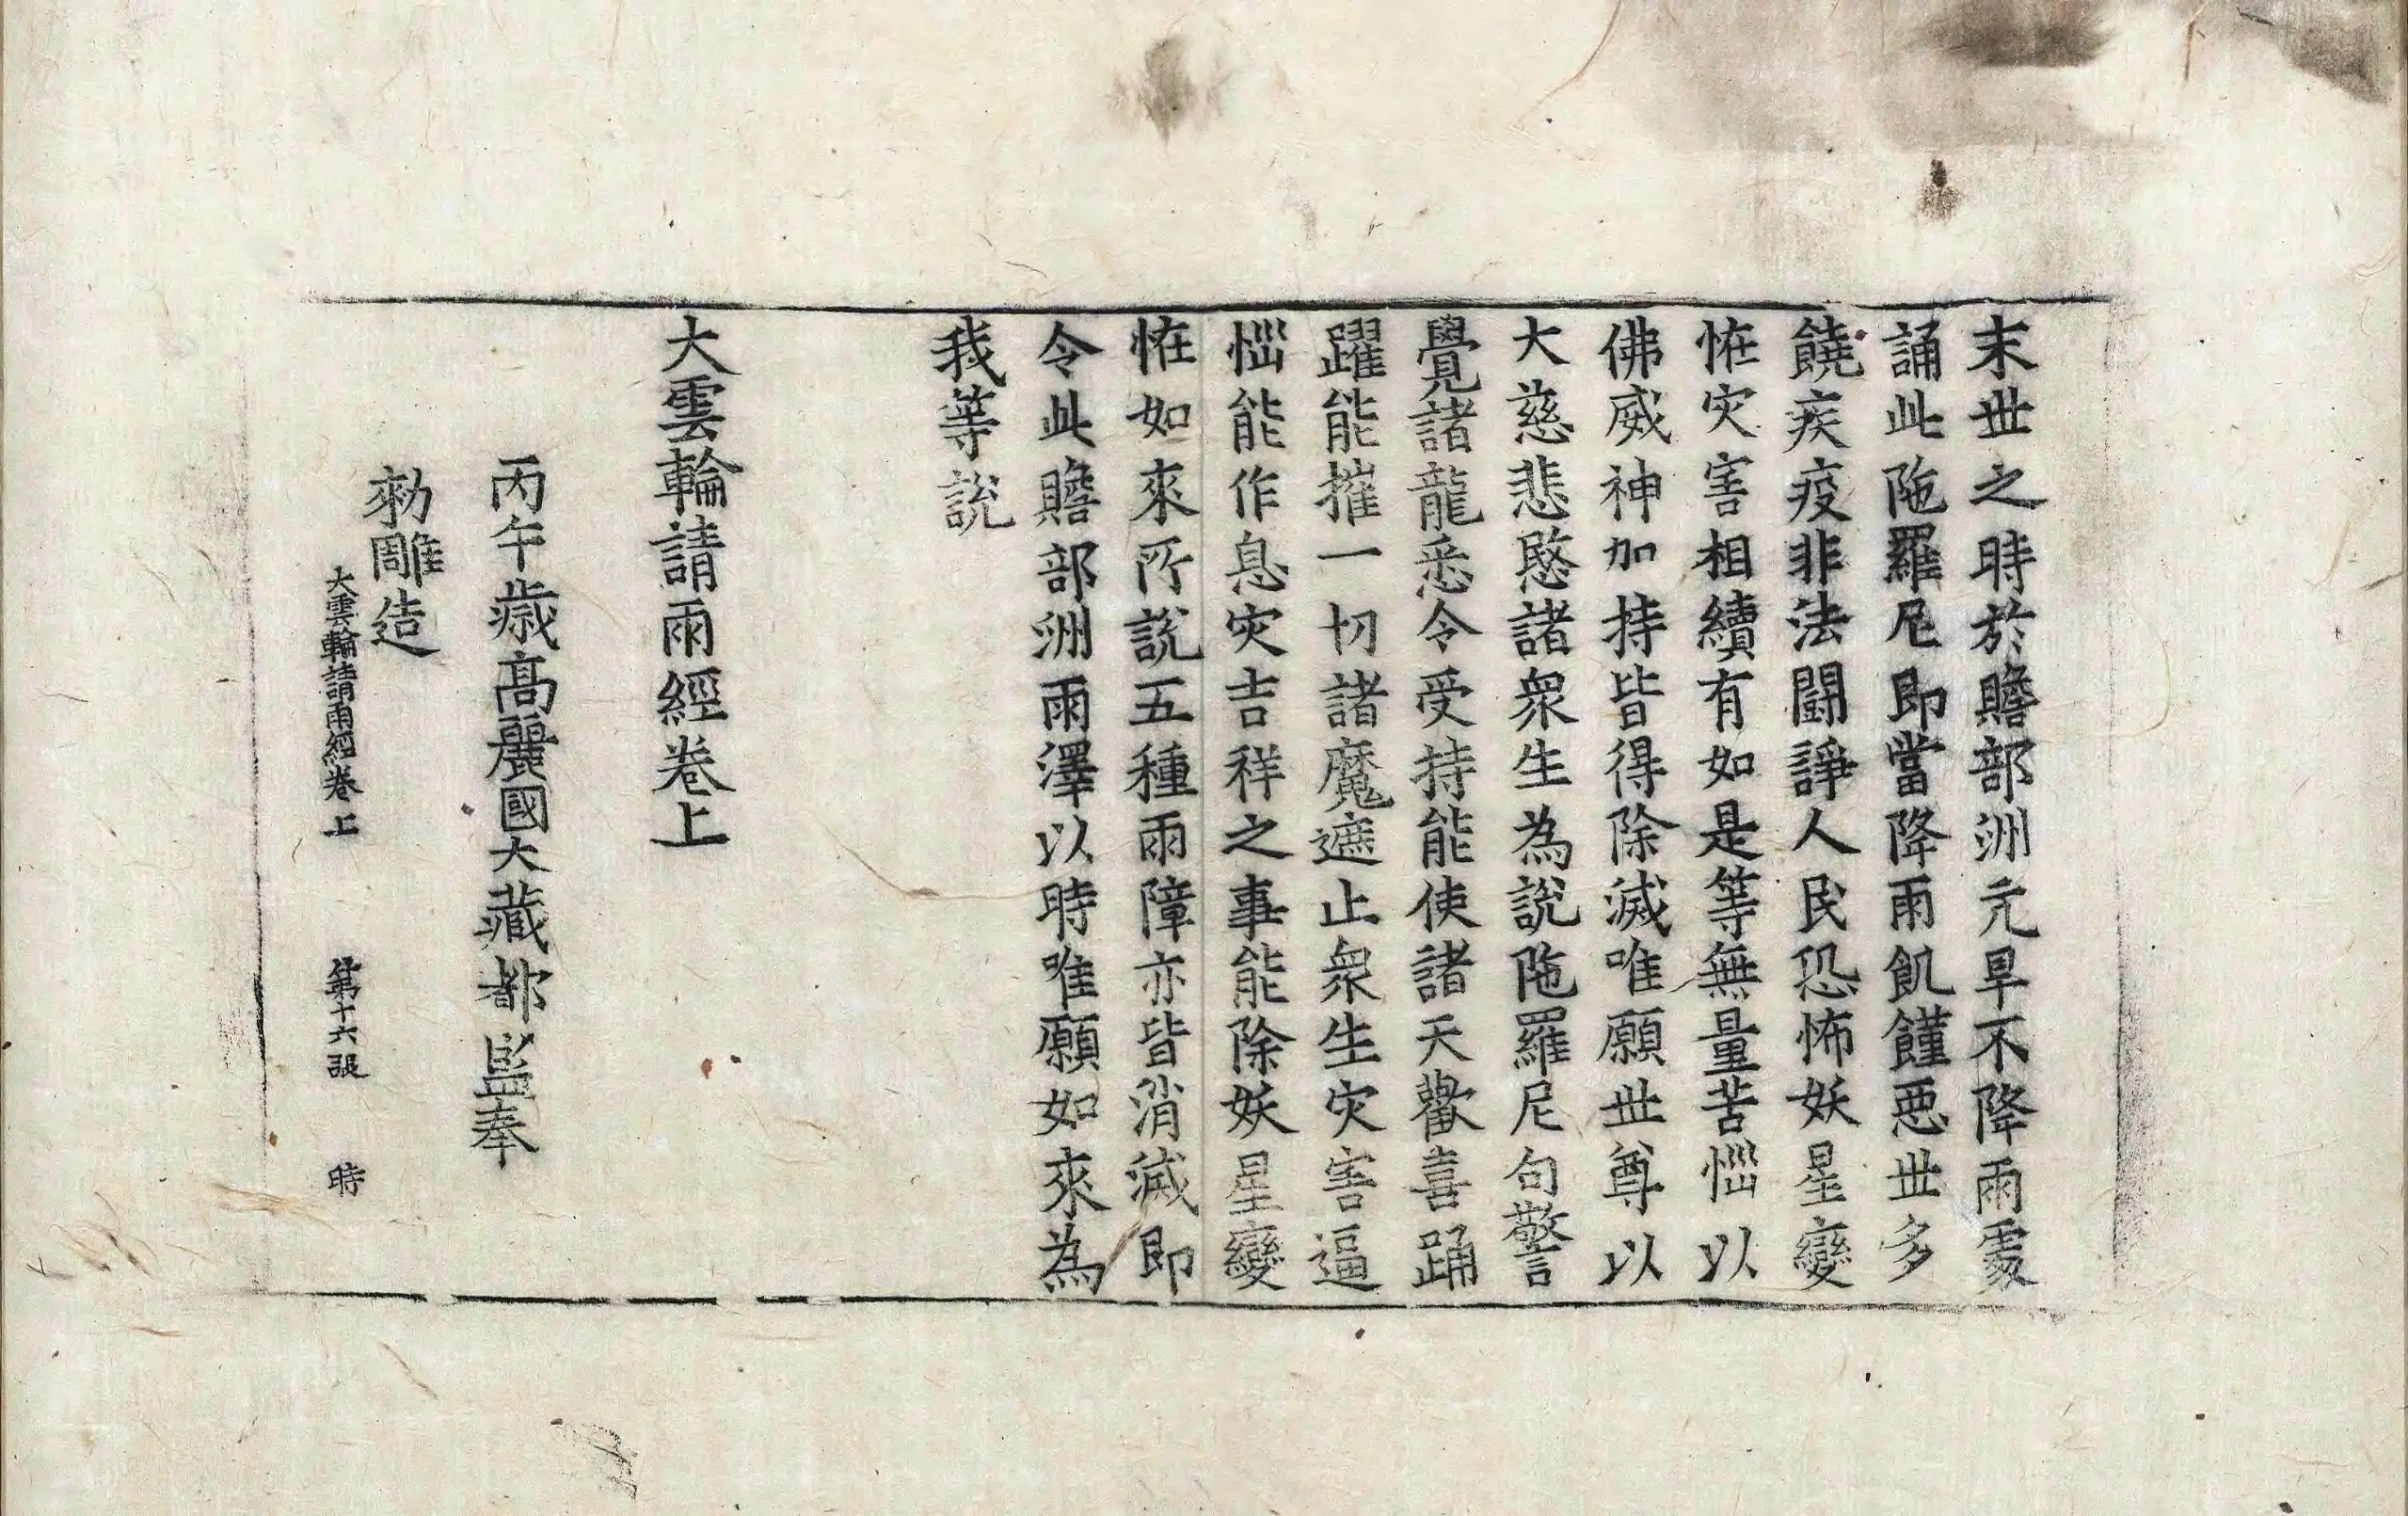 末世之時於贍部洲亢旱不降雨處
誦此陁羅尼即當降雨飢饉惡世多
饒疾疫非法鬪諍人民恐怖妖星變
恠灾害相續有如是等無量苦惱以
佛威神加持皆得除滅唯願世尊以
大慈悲愍諸衆生為說陁羅尼句警
覺諸龍悉令受持能使諸天歡喜踊
躍能摧一切諸魔遮止衆生灾害逼
惱能作息灾吉祥之事能除妖星變
恠如來所說五種雨障亦皆消滅即
令此贍部洲雨澤以時唯願如來為
我等說
大雲輪請雨經卷上
丙午歳高麗國大藏都監奉
勑雕造
大雲輪請雨經卷上 第十六張 時